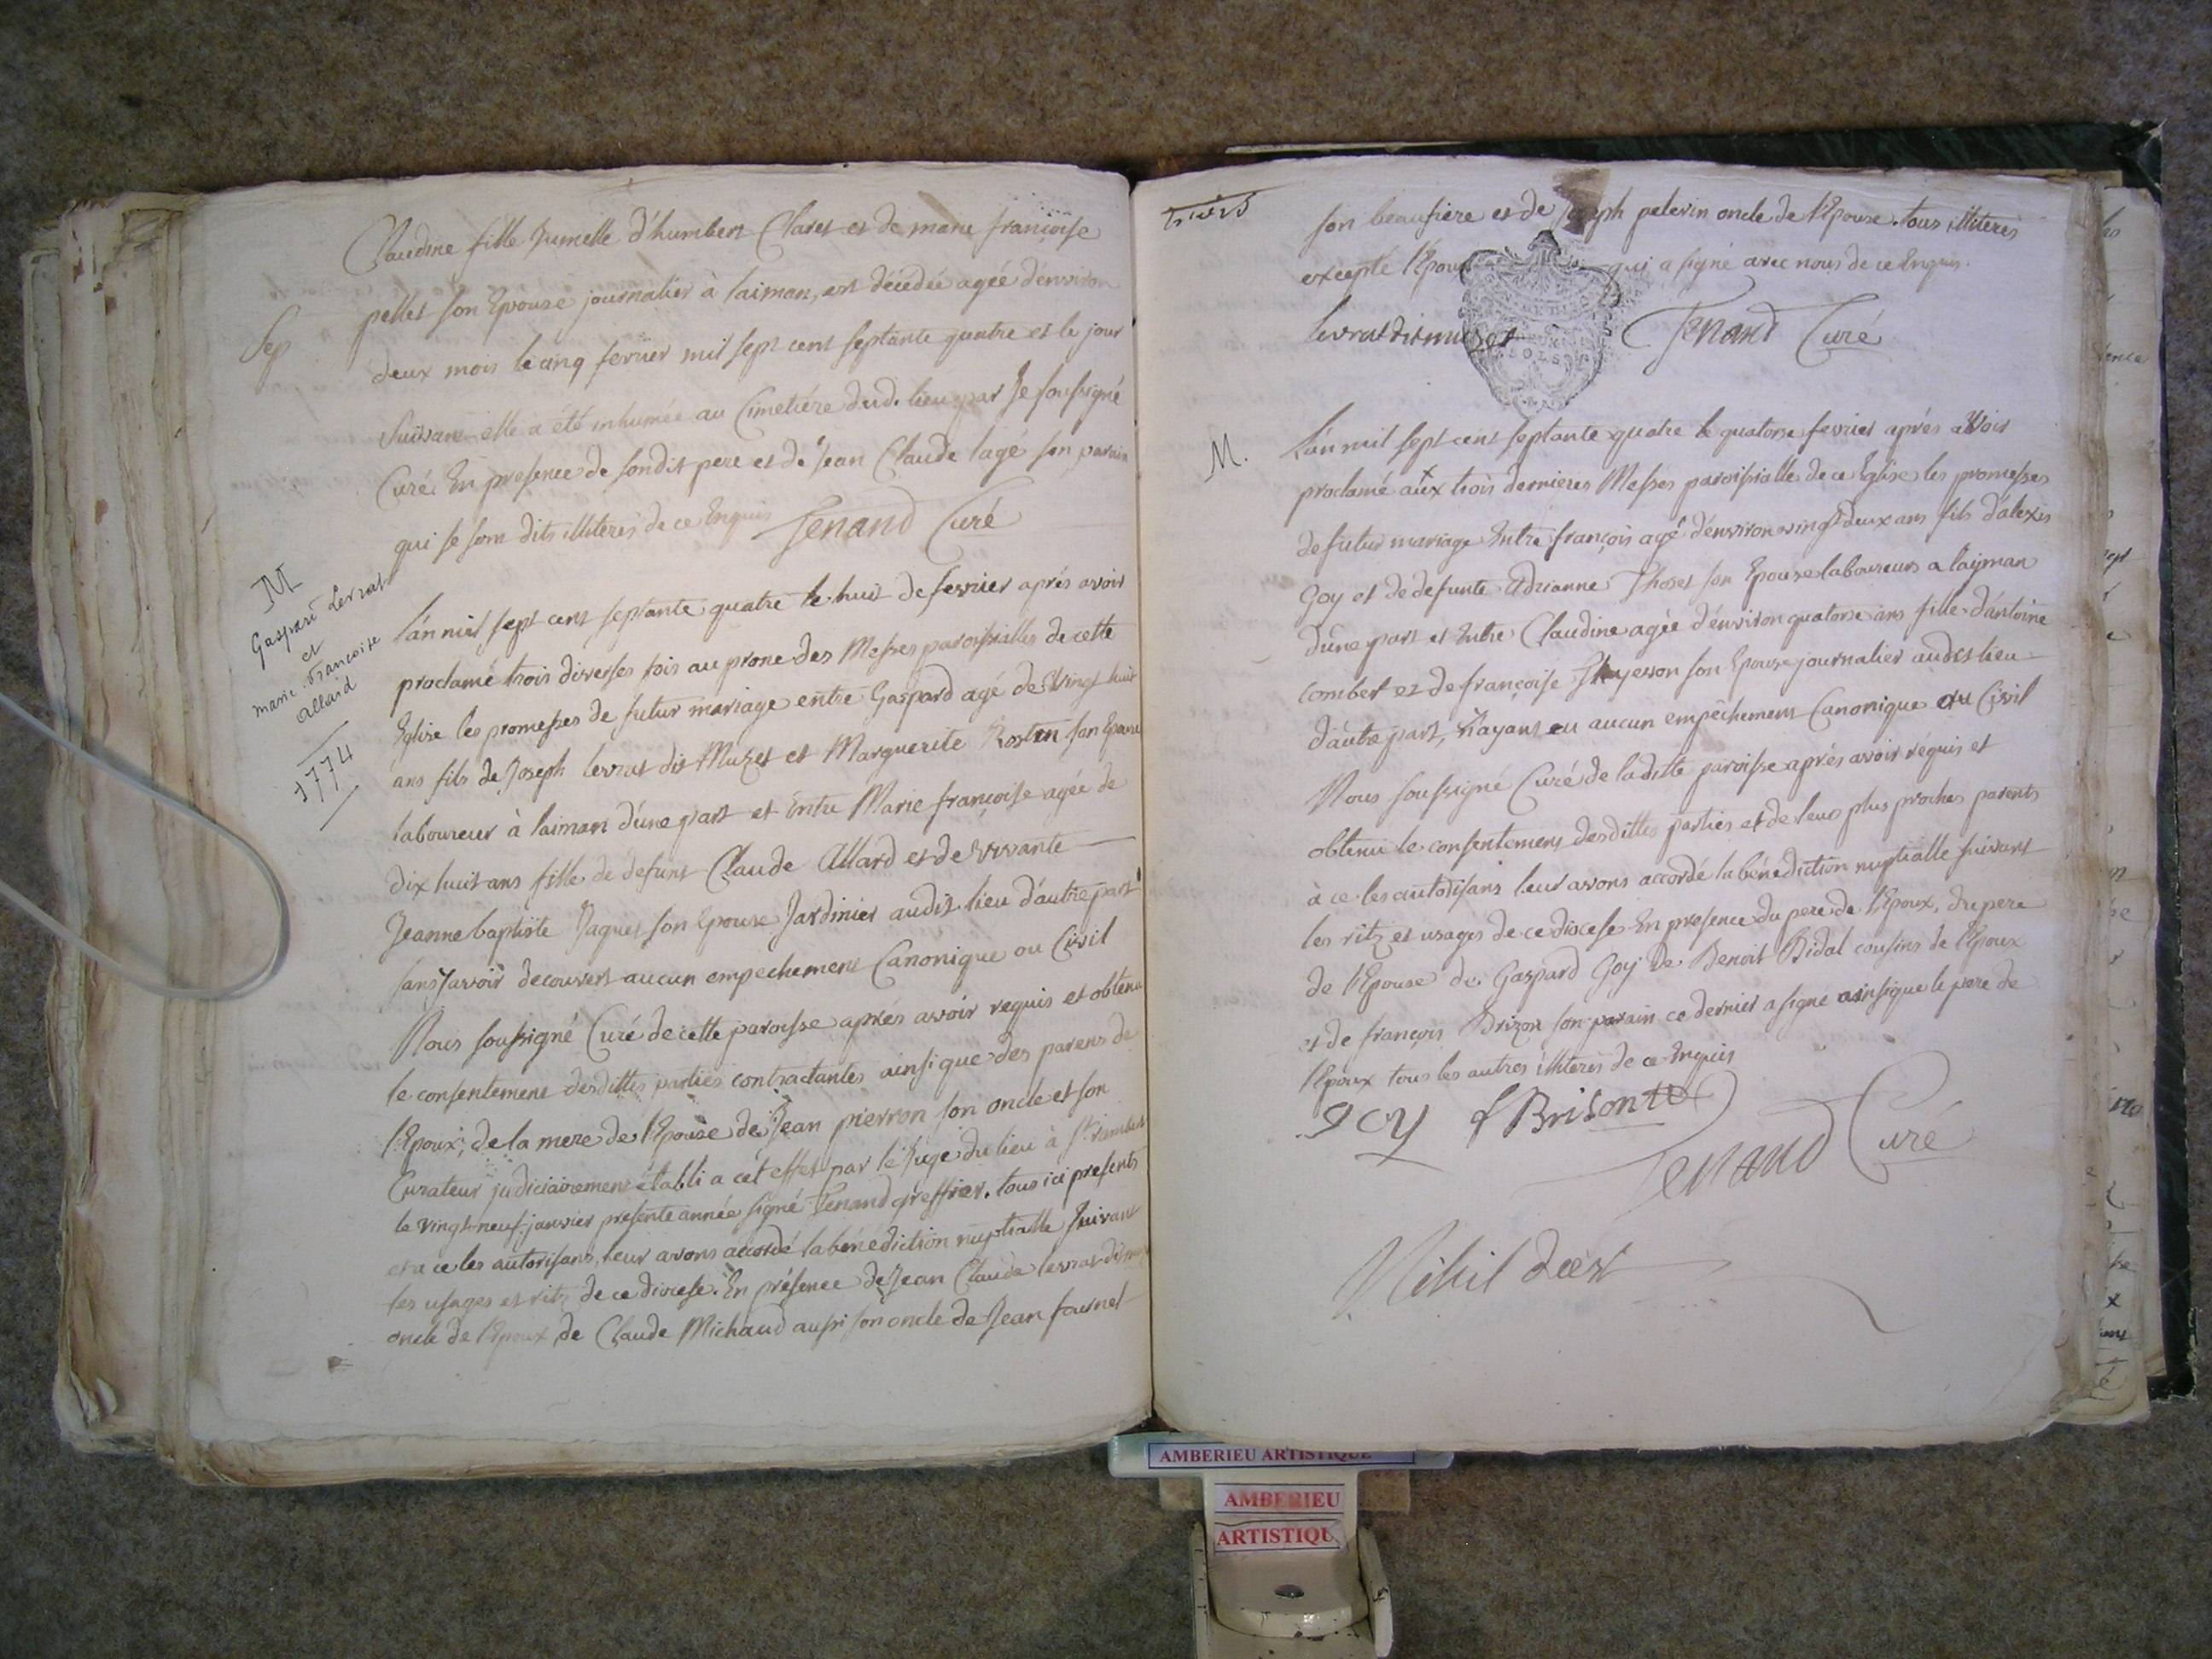 Claudine fille Jumelle d'humbert Claret et de marie françoise
pellet son Epouse journalier à laiman, est décédée agée d'environ
Sep
deux mois le cinq fevrier mil sept cent septante quatre et le jour
suivant elle a été inhumée au Cimetiére dud. lieu par Je soussigné
Curé En presence de sondit pere et de Jean Claude lagé son parain
qui se sont dits illiteres de ce Enquis Tenand Curé
M
Gaspard Levrat
et
marie Francoise
allard
1774
L'an mil sept cent septante quatre le huit de fevrier aprés avoir
proclamé trois diverses fois au prone des Messes paroissialles de cette
Eglise les promesses de futur mariage entre Gaspard agé de vingt huit
ans fils de Joseph levrat dit Muzet et Marguerite Rostin son Epouse
laboureur à laiman d'une part et Entre Marie françoise agée de
dix huit ans fille de défunt Claude Allard et de vivante
Jeanne baptiste Jaquet son Epouse Jardinier audit lieu d'autre part
sans y avoir decouvert aucun empechement Canonique ou Civil
Nous soussigné Curé de cette paroisse aprés avoir requis et obtenu
le consentement desdittes parties contractantes ainsi que des parens de
l'Epoux, de la mere de l'Epouse de Jean pierron son oncle et son
Curateur judiciairement établi a cet effet par le Juge du lieu à St. rambert
le vingt-neuf janvier presente année signé Tenand greffier. tous ici presents
et a ce les autorisans, leur avons accordé la bénédiction nuptialle suivant
les usages et rits de ce diocese. En présence de Jean Claude levrat dit
oncle de l'Epoux de Claude Michaud aussi son oncle de Jean fournel
son beaufrere et de Joseph pelerin oncle de l'Epouse. tous illiteres
excepté l'Epoux qui a signé avec nous de ce Enquis.
levrat dit muzet Tenand Curé
SOLS
M.
L'an mil sept cent septante quatre le quatorse fevrier aprés avoir
proclamé aux trois dernieres Messes paroissialle de ce Eglise les promesses
de futur mariage Entre françois agé d'environ vingt deux ans fils d'alexis
Goy et de défunte Adrianne Thoset son Epouse laboureurs a laiman
d'une part et Entre Claudine agée d'environ quatorse ans fille d'antoine
combet et de françoise son Epouse journalier audit lieu
d'autre part, N'ayant eu aucun empêchement Canonique ou Civil
Nous soussigné Curé de laditte paroisse aprés avoir réquis et
obtenu le consentement desdittes parties et de leurs plus proches parents
à ce les autorisans leur avons accordé la bénédiction nuptialle suivant
les rits et usages de ce diocese En presence du pere de l'Epoux, du pere
de l'Epouse de Gaspard Goy de Benoit Bidal cousins de l'Epoux
et de françois Brizon son parain ce dernier a signé ainsi que le pere de
l'Epoux tous les autres illiteres de ce Enquis
goy f Brisonte
Tenand Curé
Nihil deest
AMBERIEU ARTISTIQUE
AMBERIEU
ARTISTIQU